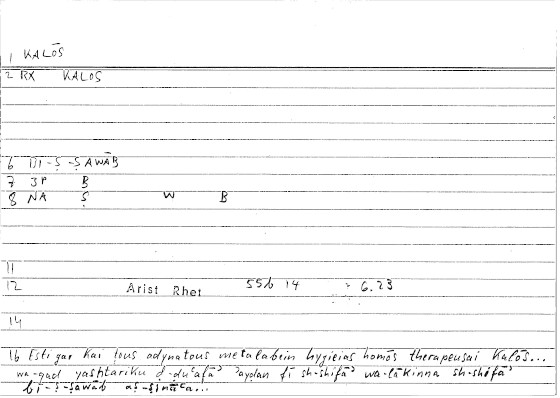 1 KALŌS
2 RX KALOS
6 III-Ṣ-ṢAWĀB
7 3P Ḅ
8 NA Ṣ W B
11
12 Arist Rhet 55b 14 = 6.23
14
16 Esti gar kai tous adynatous metalabein hygieias homōs therapeusai kalōs...
wa-qad yashtariku ḍ-ḍuʿafāʾ ʾayḍan fī sh-shifāʾ wa-lākinna sh-shifāʾ
bi-ṣ-ṣawāb